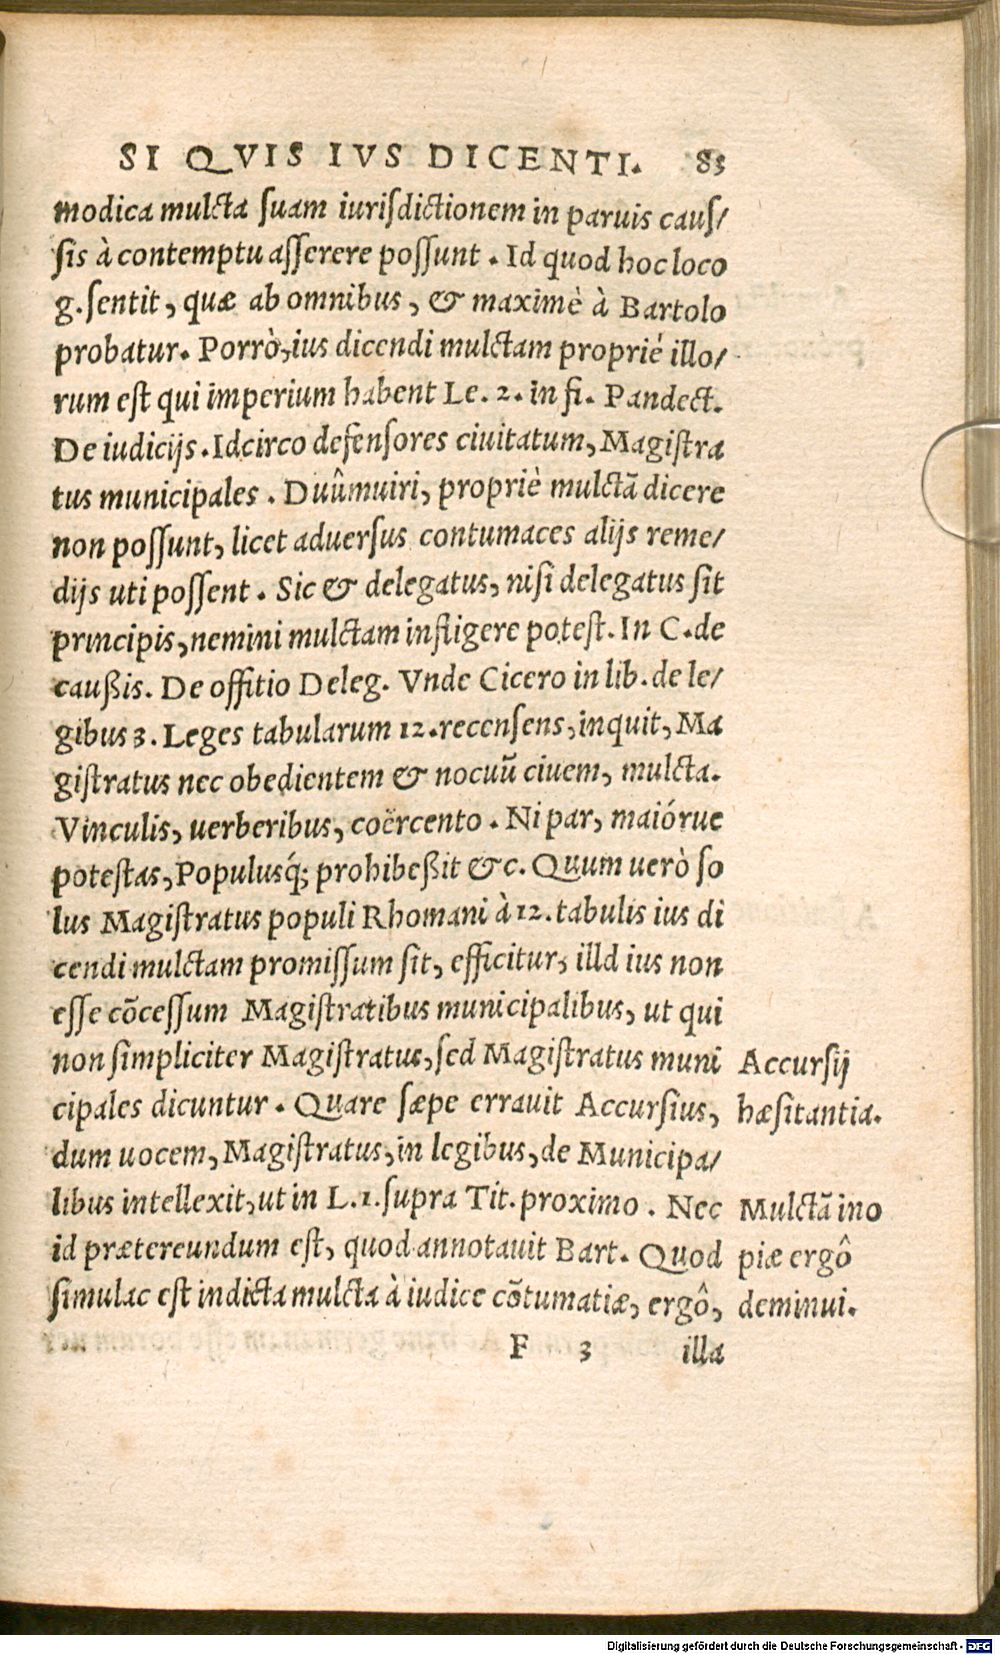 SI QVIS IVS DICENTI. 85
modica mulcta suam iurisdictionem in paruis caus/
sis à contemptu asserere possunt. Id quod hoc loco
g. sentit, quæ ab omnibus, & maximè à Bartolo
probatur. Porrò, ius dicendi mulctam propriè illo/
rum est qui imperium habent Le. 2. in fi. Pandect.
De iudicijs. Idcirco defensores ciuitatum, Magistra
tus municipales. Duûmuiri, propriè mulctã dicere
non possunt, licet aduersus contumaces alijs reme/
dijs uti possent. Sic & delegatus, nisi delegatus sit
principis, nemini mulctam infligere potest. In C. de
caußis. De offitio Deleg. Vnde Cicero in lib. de le/
gibus 3. Leges tabularum 12. recensens, inquit, Ma
gistratus nec obedientem & nocuũ ciuem, mulcta.
Vinculis, uerberibus, coërcento. Ni par, maiórue
potestas, Populusq́; prohibeßit &c. Quum uerò so
lus Magistratus populi Rhomani à 12. tabulis ius di
cendi mulctam promissum sit, efficitur, illd ius non
esse cõcessum Magistratibus municipalibus, ut qui
non simpliciter Magistratus, sed Magistratus muni
cipales dicuntur. Quare sæpe errauit Accursius,
dum uocem, Magistratus, in legibus, de Municipa/
libus intellexit, ut in L. 1. supra Tit. proximo. Nec
id prætereundum est, quod annotauit Bart. Quod
simulac est indicta mulcta à iudice cõtumatiæ, ergô,
F 3 illa
Accursij
hæsitantia.
Mulctã ino
piæ ergô
deminui.
Digitalisierung gefördert durch die Deutsche Forschungsgemeinschaft - DFG